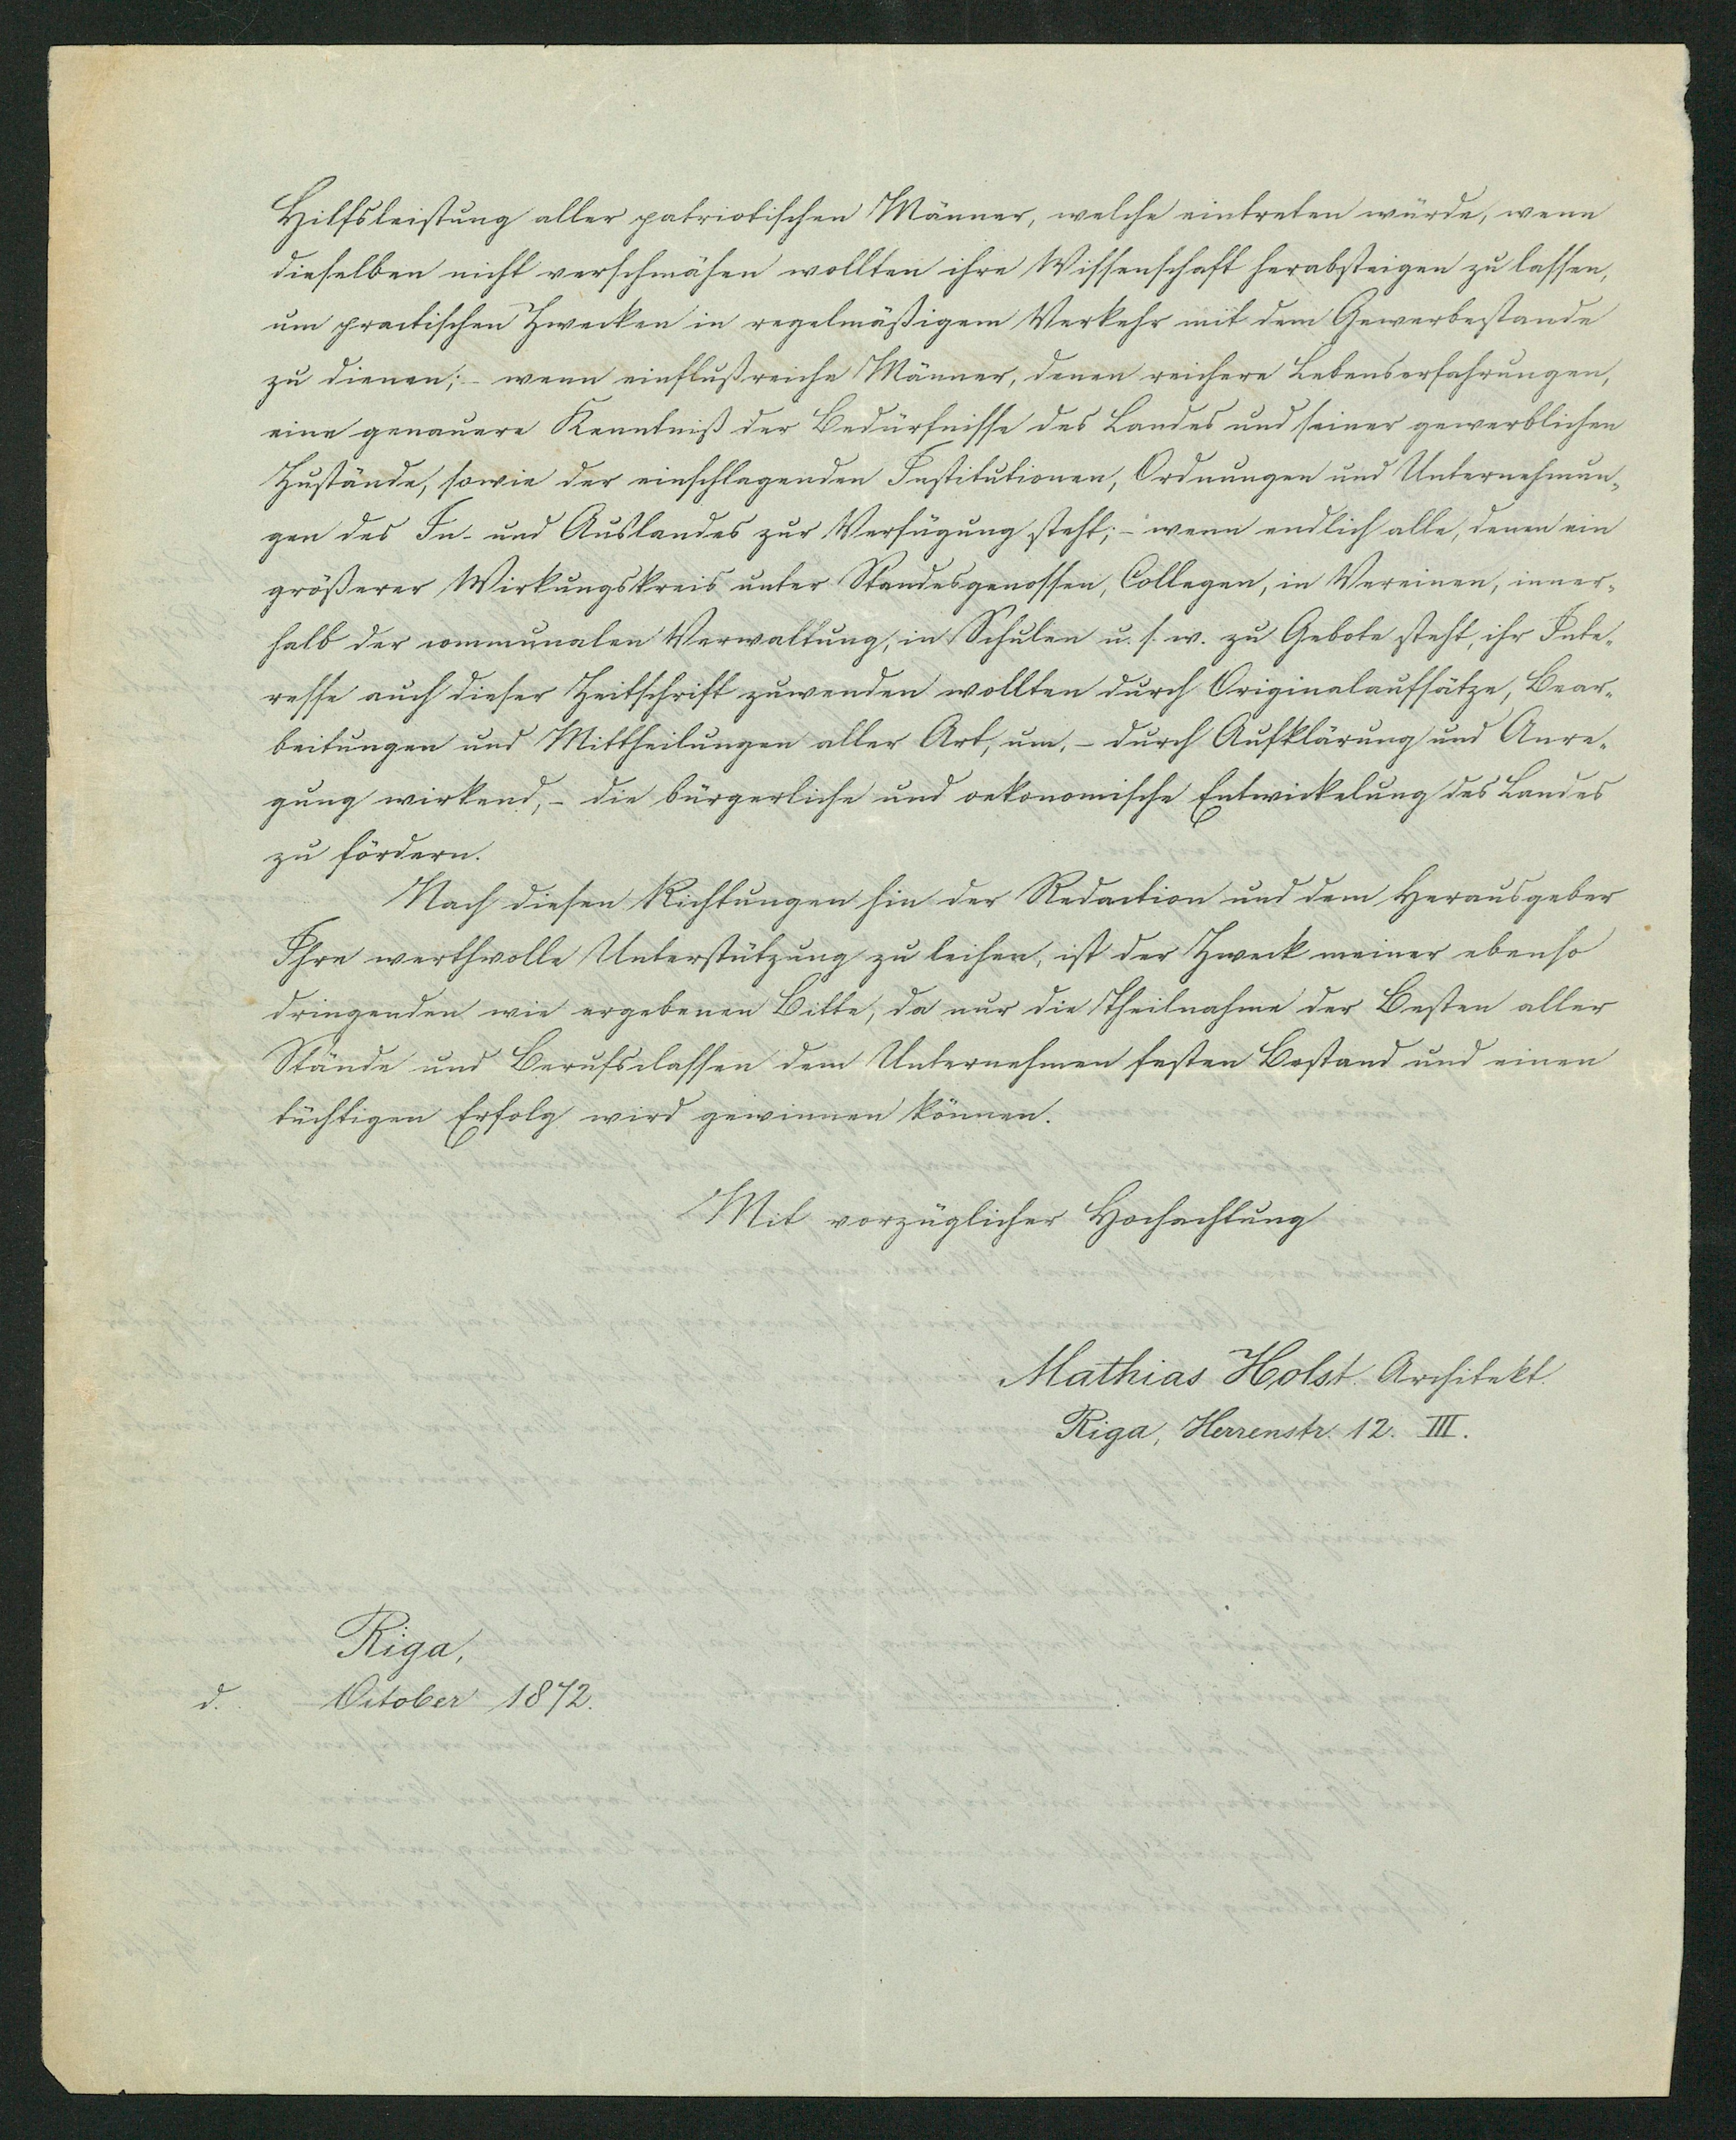 Hilfsleistung aller patriotischen Männer, welche eintreten würde, wenn
dieselben nicht verschmähen wollten ihre Wissenschaft herabsteigen zu lassen,
um practischen Zwecken in regelmäßigem Verkehr mit dem Gewerbestande
zu dienen; – wenn einflußreiche Männer, denen reichere Lebenserfahrungen,
eine genauere Kenntniß der Bedürfnisse des Landes und seiner gewerblichen
Zustände, sowie der einschlagenden Institutionen, Ordnungen und Unternehmun-
gen des In- und Auslandes zur Verfügung steht; – wenn endlich alle, denen ein
größerer Wirkungskreis unter Standesgenossen, Collegen, in Vereinen, inner-
halb der communalen Verwaltung, in Schulen u. s. w. zu Gebote steht, ihr Inte-
resse auch dieser Zeitschrift zuwenden wollten durch Originalaufsätze, Bear-
beitungen und Mittheilungen aller Art, um, – durch Aufklärung und Anre-
gung wirkend, – die bürgerliche und oekonomische Entwickelung des Landes
zu fördern.
Nach diesen Richtungen hin der Redaction und dem Herausgeber
Ihre werthvolle Unterstützung zu leihen, ist der Zweck meiner ebenso
dringenden wie ergebenen Bitte, da nur die Theilnahme der Besten aller
Stände und Berufsclassen dem Unternehmen festen Bestand und einen
tüchtigen Erfolg wird gewinnen können.
Mit vorzüglicher Hochachtung
Mathias Holst. Architekt.
Riga, Herrenstr. 12. III.
Riga,
d. October 1872.